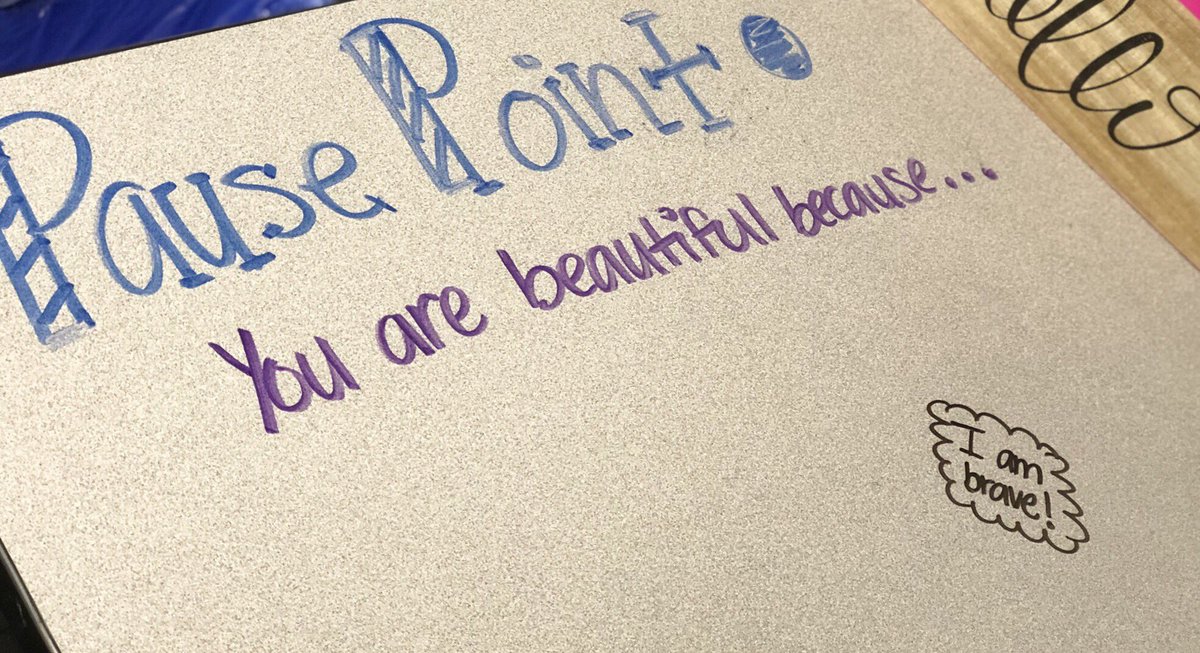 Pause Point
You are beautiful because...
I am
brave!